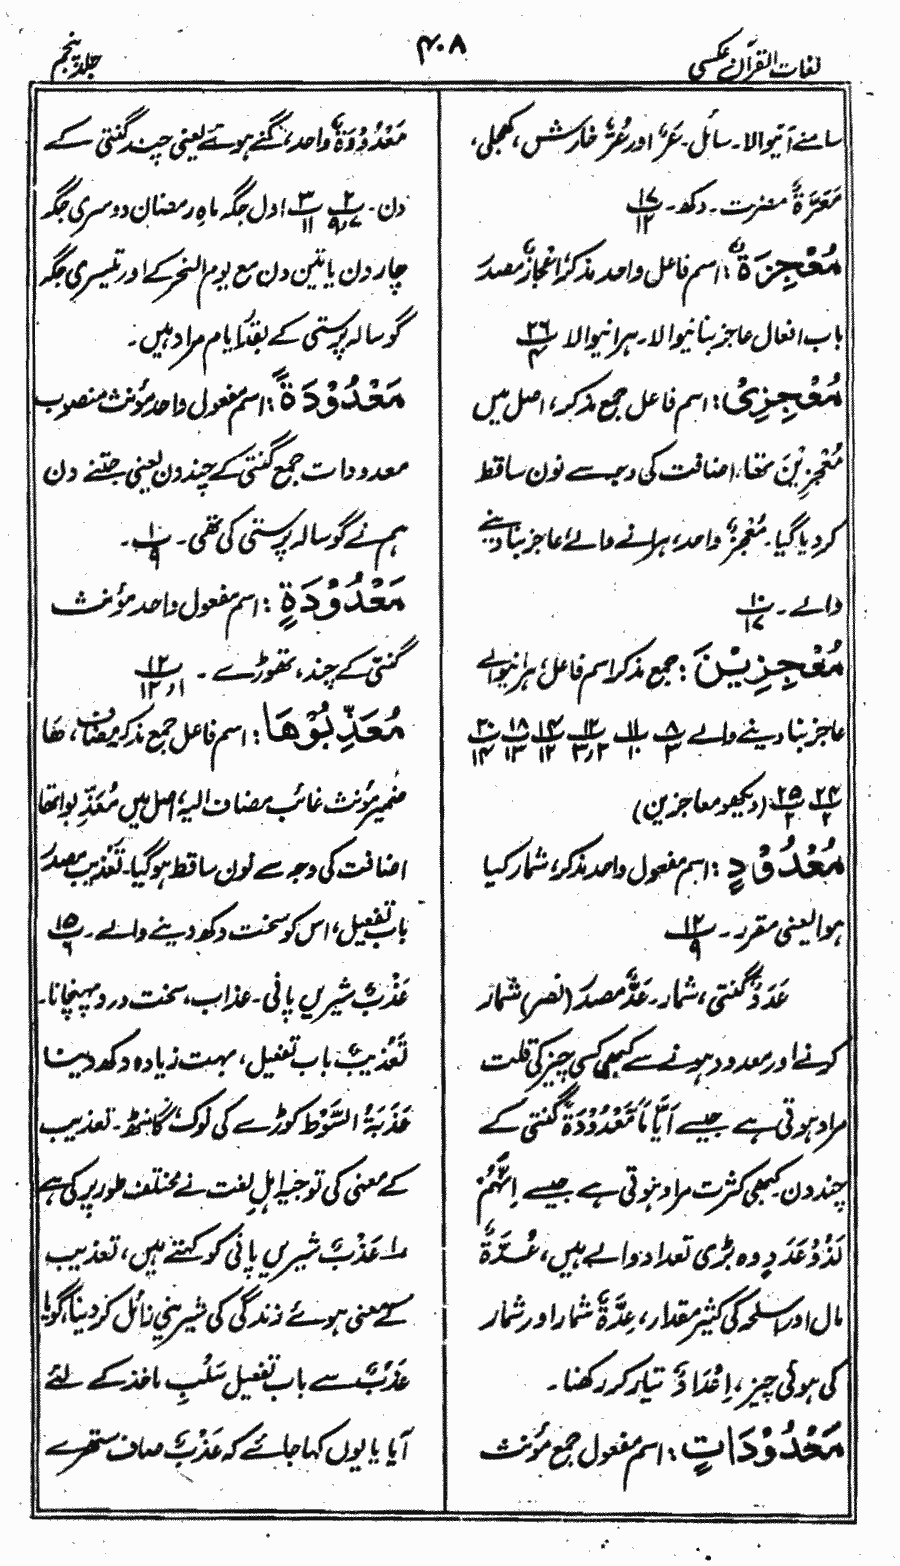 لغات القرآن عکسی
۴۰۸
جلد پنجم
سامنے آنیوالا۔ سائل۔ عَرٌّ اور عُرٌّ خارش، کھجلی،
مَعَرَّةٌ مضرت۔ دکھ۔ ۱۷/۱۲
مُعْجِزَةٌ: اسم فاعل واحد مذکر، اِعْجَازٌ مصدر
باب افعال عاجز بنانیوالا۔ ہرانیوالا ۲۶/۴
مُعْجِزِیْ: اسم فاعل جمع مذکر، اصل میں
مُعْجِزِيْنَ تھا، اضافت کی وجہ سے نون ساقط
کر دیا گیا۔ مُعْجِزٌ واحد، ہرانے والے، عاجز بنا دینے
والے۔ ۱۰/۱۷
مُعْجِزِيْنَ: جمع مذکر اسم فاعل، ہرانیوالے
عاجز بنا دینے والے ۸/۳ ۱۱/۱۰ ۱۲/۳٫۲ ۱۴/۱۲ ۱۸/۱۳ ۲۰/۱۴
۲۴/۲ ۲۵/۲ (دیکھو معاجزین)
مَعْدُوْدٍ: اسم مفعول واحد مذکر، شمار کیا
ہوا یعنی مقرر۔ ۱۲/۹
عَدَدٌ گنتی، شمار۔ عَدٌّ مصدر (نصر) شمار
کرنے اور معدود ہونے سے کبھی کسی چیز کی قلت
مراد ہوتی ہے جیسے اَيَّامًا مَّعْدُوْدَةً گنتی کے
چند دن۔ کبھی کثرت مراد ہوتی ہے جیسے اِنَّهُمْ
لَذُوْ عَدَدٍ وہ بڑی تعداد والے ہیں، عُدَّةٌ
مال اور اسلحہ کی کثیر مقدار، عِدَّةٌ شمار اور شمار
کی ہوئی چیز، اِعْدَادٌ تیار کر رکھنا۔
مَعْدُوْدَاتٍ: اسم مفعول جمع مؤنث
مَعْدُوْدَةٌ واحد، گنے ہوئے یعنی چند گنتی کے
دن۔ ۲/۹٫۷ ۳/۱۱ اول جگہ ماہِ رمضان دوسری جگہ
چار دن یا تین دن مع یوم النحر کے اور تیسری جگہ
گوسالہ پرستی کے بقدر ایام مراد ہیں۔
مَعْدُوْدَةً: اسم مفعول واحد مؤنث منصوب
معدودات جمع گنتی کے چند دن یعنی جتنے دن
ہم نے گوسالہ پرستی کی تھی۔ ۱/۹۔
مَعْدُوْدَةٍ: اسم مفعول واحد مؤنث
گنتی کے چند، تھوڑے۔ ۱۲/۱٫۱۳
مُعَذِّبُوْهَا: اسم فاعل جمع مذکر مضاف، ھا
ضمیر مؤنث غائب مضاف الیہ، اصل میں مُعَذِّبون تھا
اضافت کی وجہ سے نون ساقط ہو گیا۔ تَعْذِيب مصدر
باب تفعیل، اس کو سخت دکھ دینے والے۔ ۱۵/۶
عَذْبٌ شیریں پانی۔ عذاب، سخت درد پہنچانا۔
تَعْذِيبٌ باب تفعیل، بہت زیادہ دکھ دینا
عَذَبَةُ السَّوْط کوڑے کی نوک، گانٹھ۔ تعذیب
کے معنی کی توجیہ اہلِ لغت نے مختلف طور پر کی ہے
۱۔ عَذْبٌ شیریں پانی کو کہتے ہیں، تعذیب
کے معنی ہوئے زندگی کی شیرینی زائل کر دینا گویا
عَذْبٌ سے باب تفعیل سَلْبِ ماخذ کے لئے
آیا یا یوں کہا جائے کہ عَذْبٌ صاف ستھرے